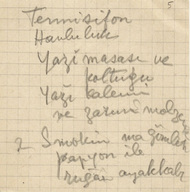 5
Termisifon
Havluluk
Yazı masası ve
koltuğu
Yazı kalemi
ve
2 Smokin ma gömlek
papyon ile
rugan ayakkabı